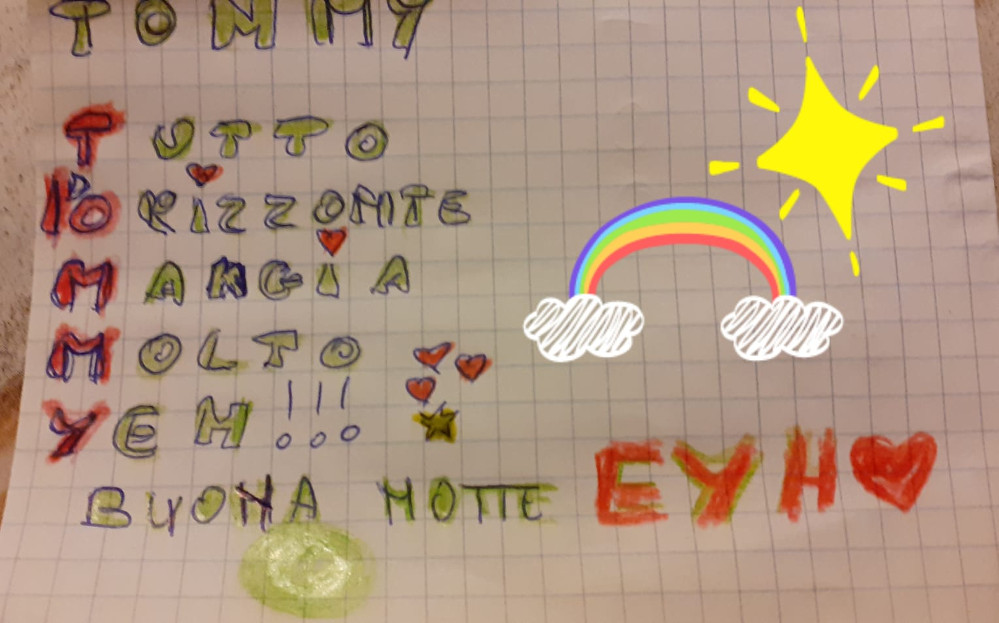 TOMMY
TUTTO
ORIZZONTE
MANGIA
MOLTO
YEH!!!
BUONA NOTTE
EYH